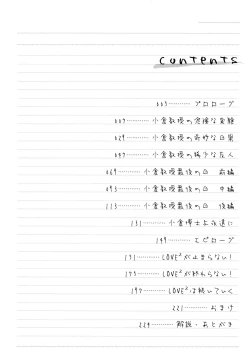 contents
プロローグ
小倉教授の危険な実験
小倉教授の奇妙な日常
小倉教授の稀少な友人
小倉教授最後の日 前編
小倉教授最後の日 中編
小倉教授最後の日 後編
131 小倉博士よ永遠に
エピローグ
171 LOVE²が止まらない!
LOVE²が終わらない!
LOVE²は続いていく
221 おまけ
229 解説・あとがき